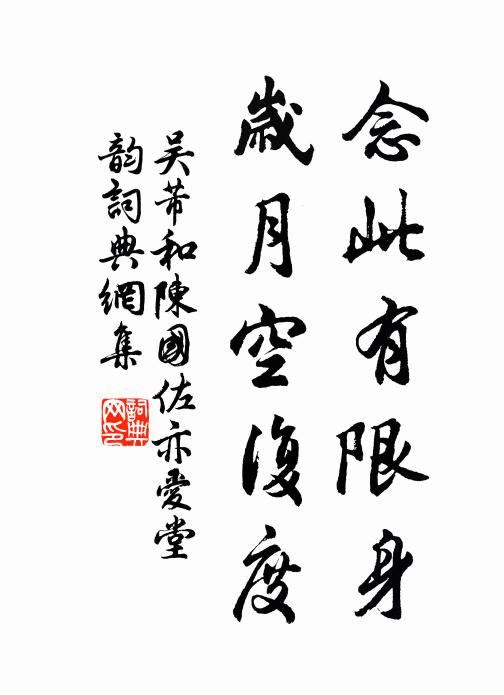 念此有限身
歲月空復度
吴芾和陳國佐亦愛堂
韵詞典網集
詞典网印